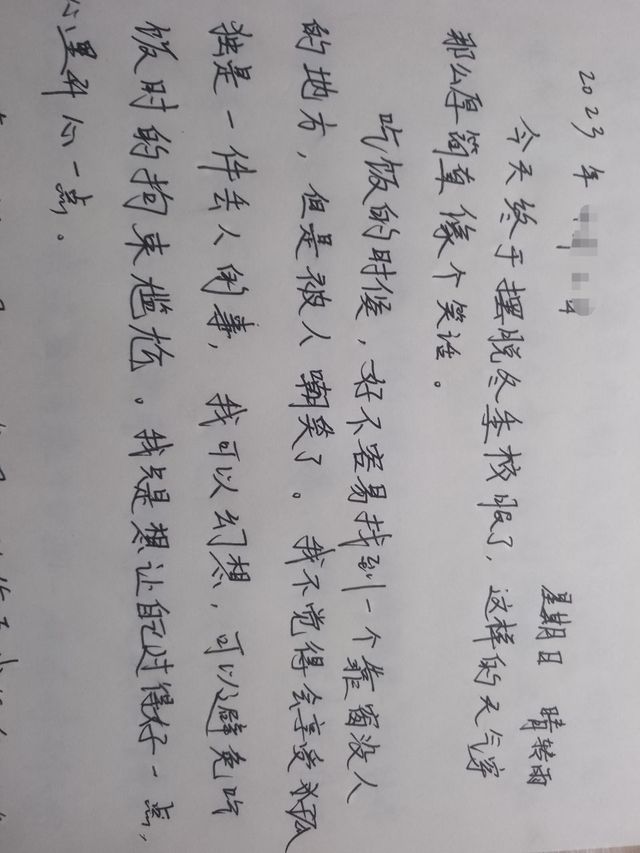 2023年 星期日 晴转雨
今天终于摆脱冬季校服了，这样的天气穿
那么厚简直像个笑话。
吃饭的时候，好不容易找到一个靠窗没人
的地方，但是被人嘲笑了。我不觉得会享受孤
独是一件丢人的事，我可以幻想，可以避免吃
饭时的拘束尴尬。我只是想让自己过得好一点，
心里开心一点。